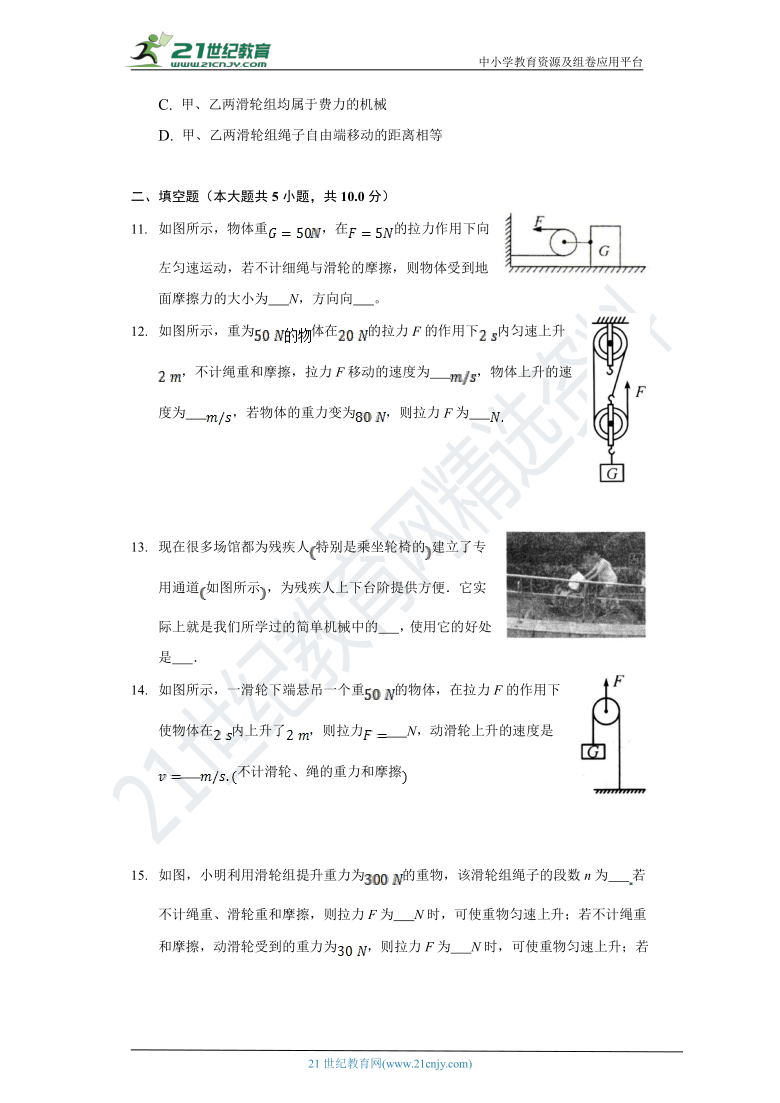 21世纪教育
WWW.21CNJY.COM
中小学教育资源及组卷应用平台
C. 甲、乙两滑轮组均属于费力的机械
D. 甲、乙两滑轮组绳子自由端移动的距离相等
二、填空题（本大题共 5 小题，共 10.0 分）
11. 如图所示，物体重G = 50N，在F = 5N的拉力作用下向
左匀速运动，若不计细绳与滑轮的摩擦，则物体受到地
面摩擦力的大小为___N，方向向___。
F
G
12. 如图所示，重为50 N的物体在20 N的拉力 F 的作用下2 s内匀速上升
2 m，不计绳重和摩擦，拉力 F 移动的速度为___m/s，物体上升的速
度为___m/s，若物体的重力变为80 N，则拉力 F 为___N.
F
G
13. 现在很多场馆都为残疾人(特别是乘坐轮椅的)建立了专
用通道(如图所示)，为残疾人上下台阶提供方便．它实
际上就是我们所学过的简单机械中的___，使用它的好处
是___．
14. 如图所示，一滑轮下端悬吊一个重50 N的物体，在拉力 F 的作用下
使物体在2 s内上升了2 m，则拉力F =___N，动滑轮上升的速度是
v =___m/s.(不计滑轮、绳的重力和摩擦)
F
G
15. 如图，小明利用滑轮组提升重力为300 N的重物，该滑轮组绳子的段数 n 为___.若
不计绳重、滑轮重和摩擦，则拉力 F 为___N 时，可使重物匀速上升；若不计绳重
和摩擦，动滑轮受到的重力为30 N，则拉力 F 为___N 时，可使重物匀速上升；若
21世纪教育网精选资料
21 世纪教育网(www.21cnjy.com)